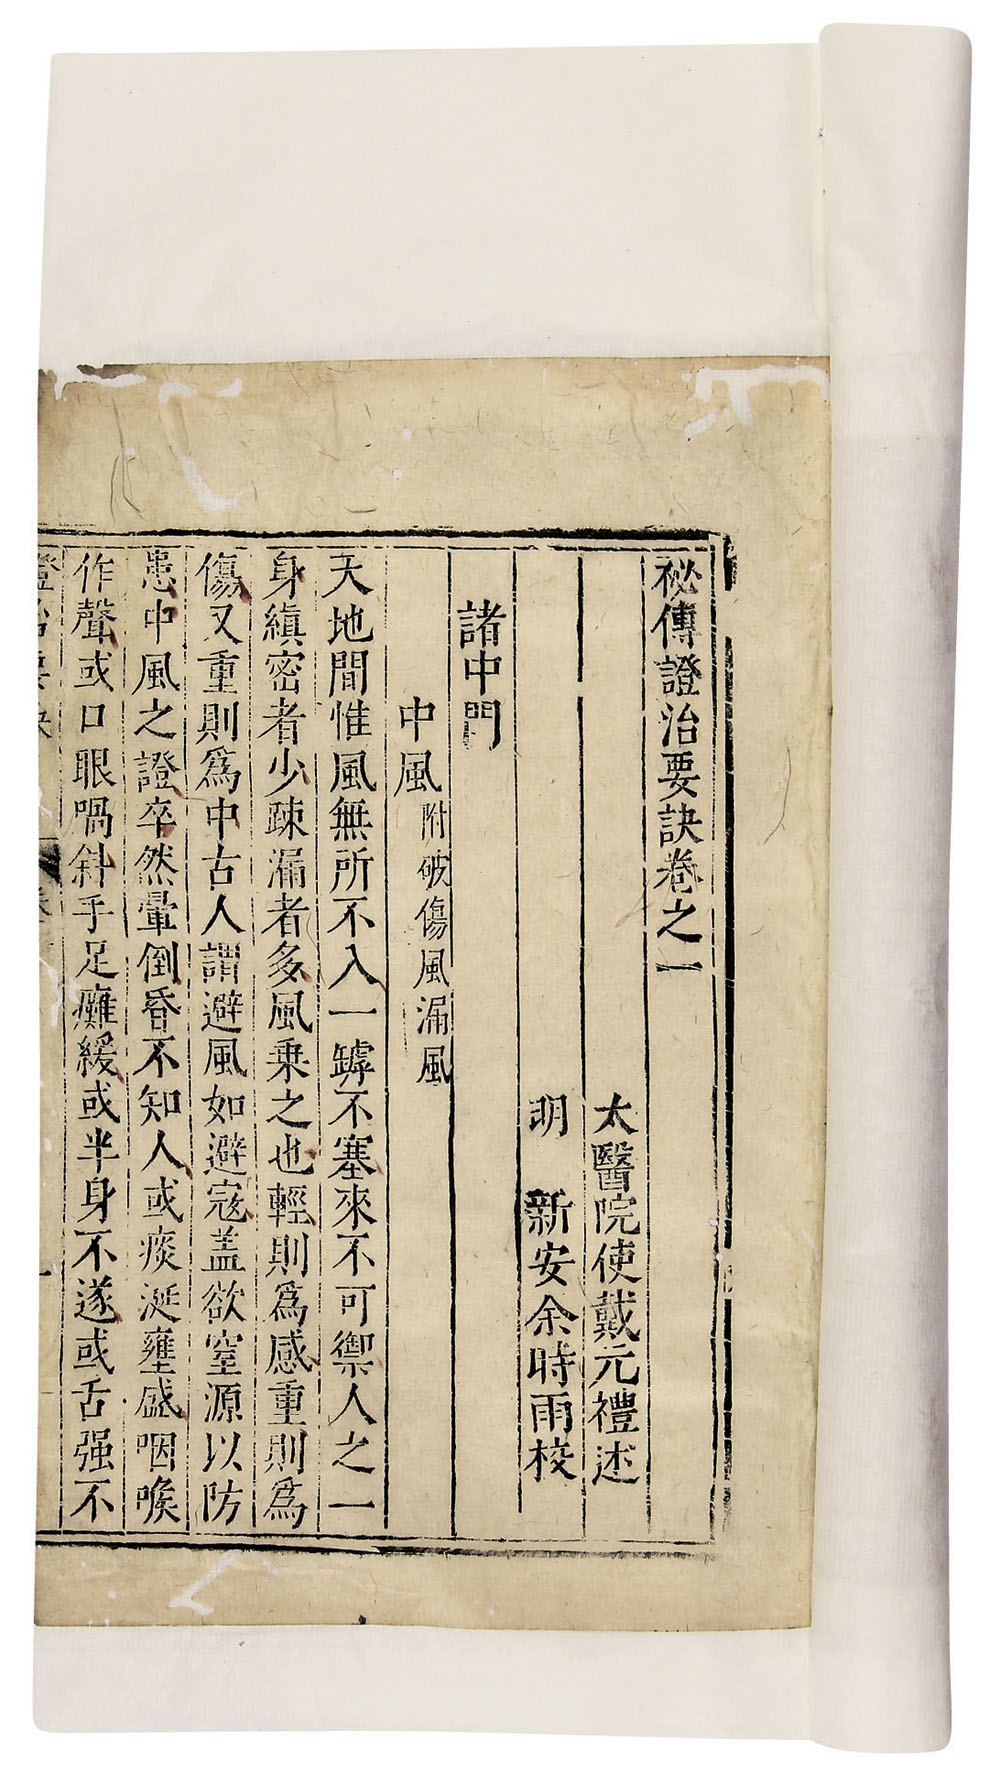 祕傳證治要訣卷之一
太醫院使戴元禮述
明 新安余時雨校
諸中門
中風附破傷風漏風
天地間惟風無所不入一罅不塞來不可禦人之一
身縝密者少疎漏者多風乗之也輕則爲感重則爲
傷又重則爲中古人謂避風如避寇盖欲窒源以防
患中風之證卒然暈倒昏不知人或痰涎壅盛咽喉
作聲或口眼喎斜手足癱緩或半身不遂或舌强不
證治要訣